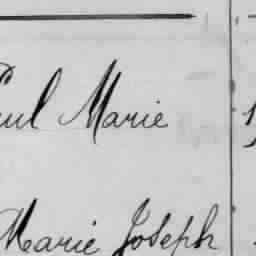 Paul Marie
Marie Joseph